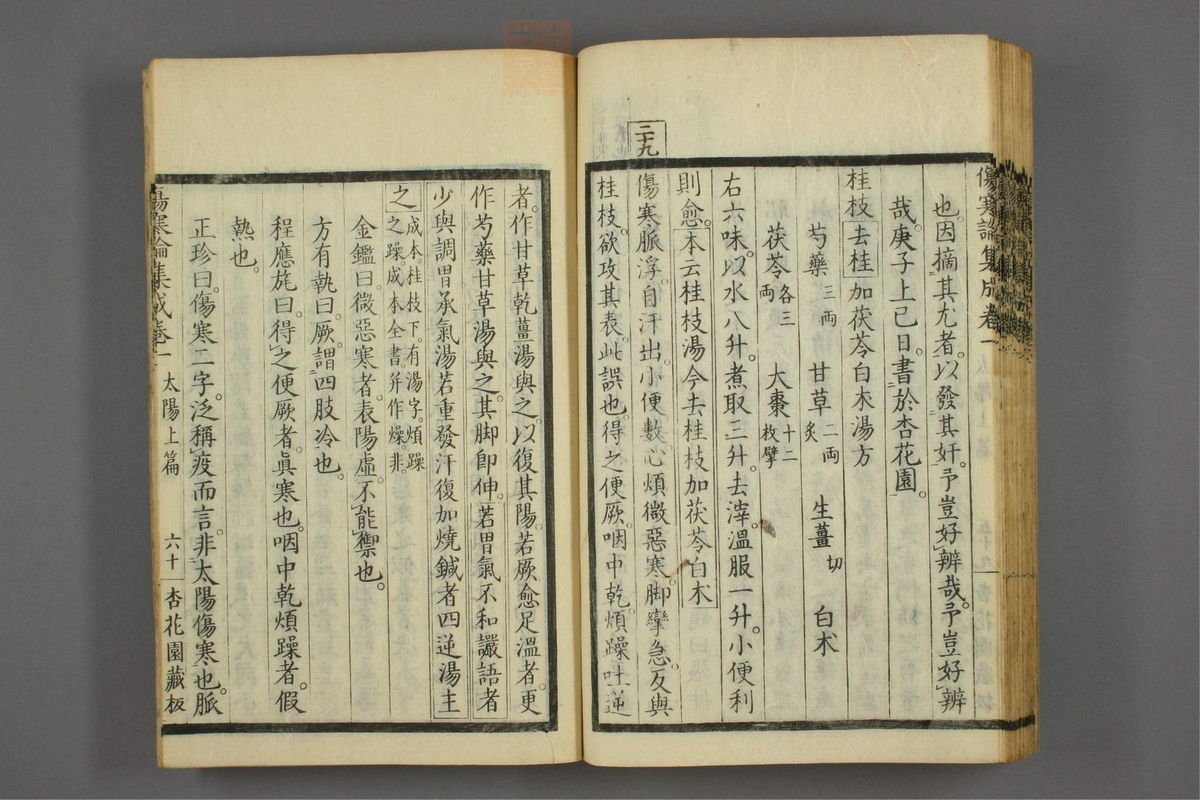 傷寒論集成卷一
也。因摘其尤者。以發其奸。予豈好辨哉。予豈好辨
哉。庚子上巳日。書於杏花園。
桂枝去桂加茯苓白朮湯方
芍藥三兩 甘草二兩炙 生薑切 白朮
茯苓各三兩 大棗十二枚擘
右六味。以水八升。煮取三升。去滓。溫服一升。小便利
則愈。本云桂枝湯今去桂枝加茯苓白朮
二十九
傷寒脈浮。自汗出。小便數。心煩。微惡寒。脚攣急。反與
桂枝。欲攻其表。此誤也。得之便厥。咽中乾。煩躁吐逆
者。作甘草乾薑湯與之。以復其陽。若厥愈足溫者。更
作芍藥甘草湯與之。其脚卽伸。若胃氣不和讝語者
少與調胃承氣湯若重發汗復加燒鍼者四逆湯主
之成本。桂枝下。有湯字。煩躁之躁。成本全書。幷作燥。非。
金鑑曰。微惡寒者。表陽虛。不能禦也。
方有執曰。厥。謂四肢冷也。
程應旄曰。得之便厥者。眞寒也。咽中乾煩躁者。假
熱也。
正珍曰。傷寒二字。泛稱疫而言。非太陽傷寒也。脈
傷寒論集成卷一 太陽上篇 六十 杏花園藏板